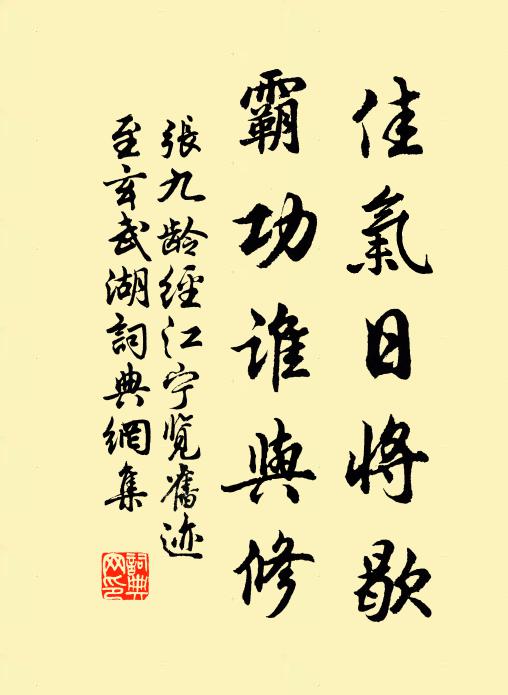 佳氣日將歇
霸功誰與修
張九齡經江宁览舊迹
至玄武湖詞典網集
詞典
网印